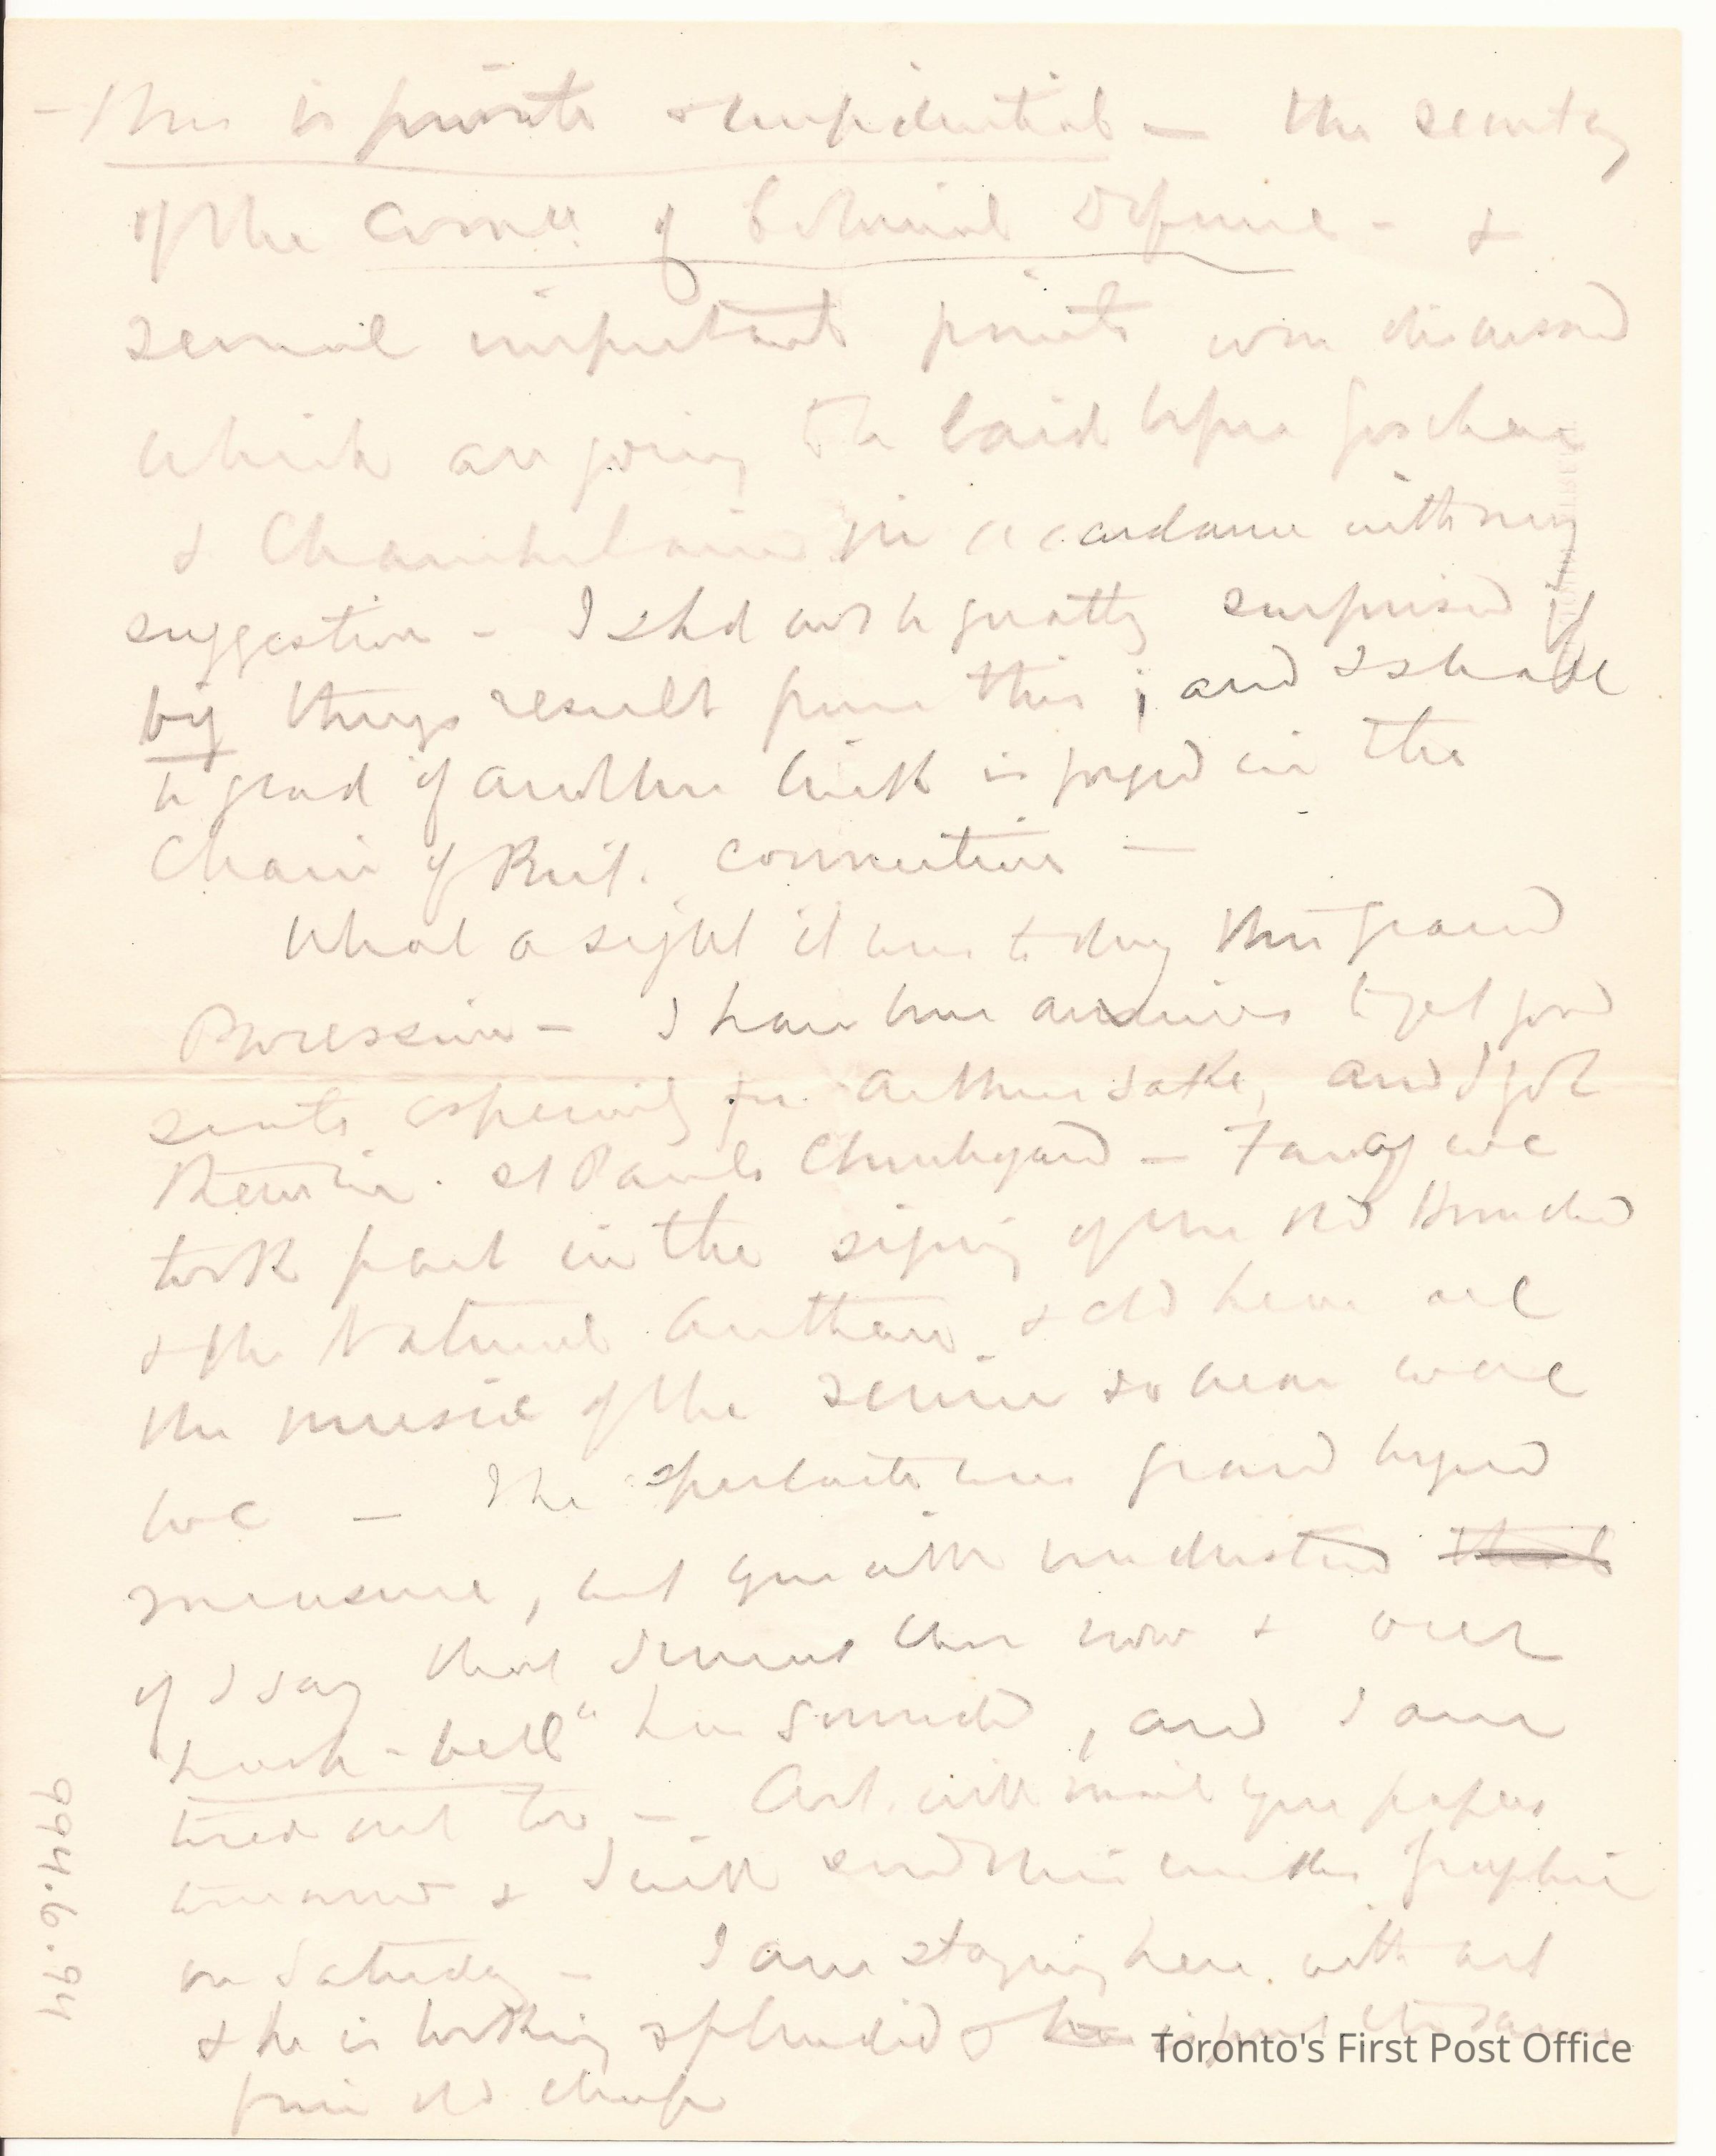 - This is private & confidential - the secretary
of the Comee of Colonial Defence - &
several important points were discussed
which are going to be laid before Goschen
& Chamberlain in accordance with my
suggestion - I shd not be greatly surprised if
big things result from this ; and I shall
be glad if another link is forged in the
Chain of Brit. connection -
What a sight it was to day this grand
Procession - I have been anxious to get good
seats especially for Arthurs sake, and I got
them in St Pauls Churchyard - Fancy we
took part in the singing of the old Hundred
& the National Anthem & cld hear all
the music of the service so near were
we - The spectacle was grand beyond
measure, but you will understand that
if I say that 3 hours
"hush-bell" has sounded, and I am
tired out too - Art. will mail you papers
tomorrow & I will send this with the Graphic
on Saturday - I am staying here with Art
& he is looking splendid & he is just the same
fine old chap
994.6.94
Toronto's First Post Office